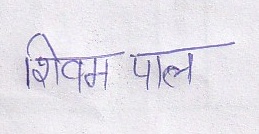 शिवम पाल